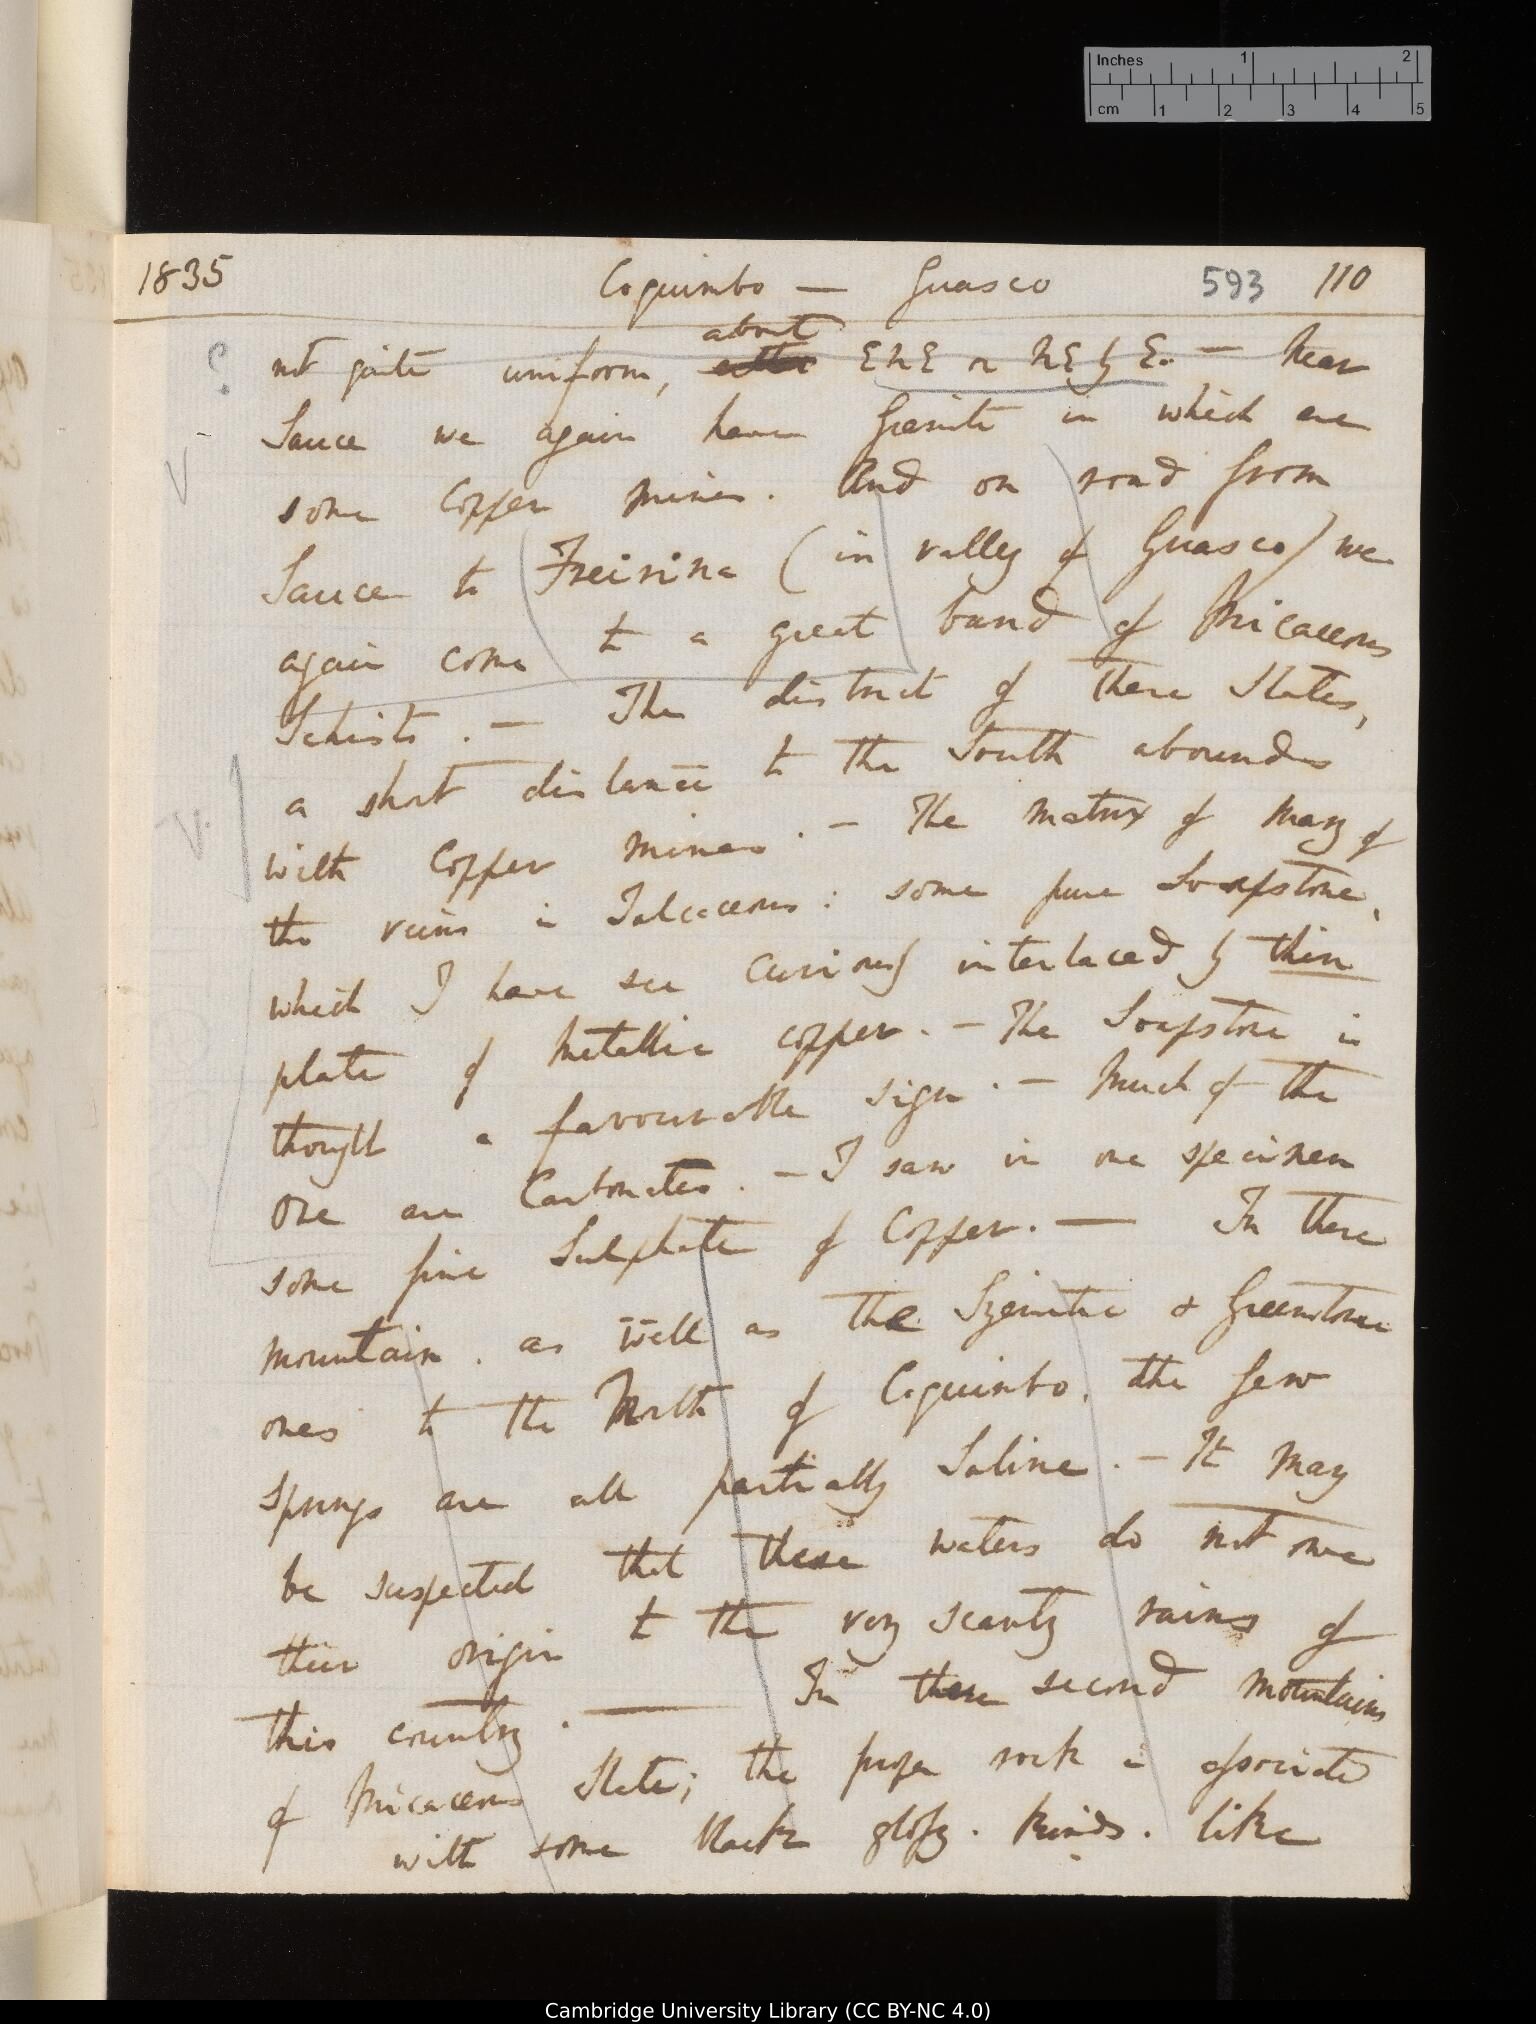 Inches 1 2
cm 1 2 3 4 5
1835 Coquimbo — Guasco 593 110
about
? not quite uniform, either ENE or NE by E. — Near
Sauce we again have Granite in which are
V some Copper mines. And on road from
Sauce to Freirina (in valley of Guasco) we
again come to a great band of Micaceous
Schists. — The district of these Slates,
a short distance to the South abounds
V. with Copper mines. — The matrix of many of
the veins is Talcaceous: some pure Soapstone,
which I have see curiously interlaced by thin
plate of metallic copper. — The Soapstone is
thought a favourable sign. — Much of the
Ore are Carbonates. — I saw in one specimen
some fine Sulphate of Copper. — In these
mountain, as well as the Syenitic & Greenstone
ones to the North of Coquimbo, the few
springs are all partially Saline. — It may
be suspected that these waters do not owe
their origin to the very scanty rains of
this country. — In these second mountains
of Micaceous Slate; the proper rock is associated
with some black glossy. kinds. like
Cambridge University Library (CC BY-NC 4.0)